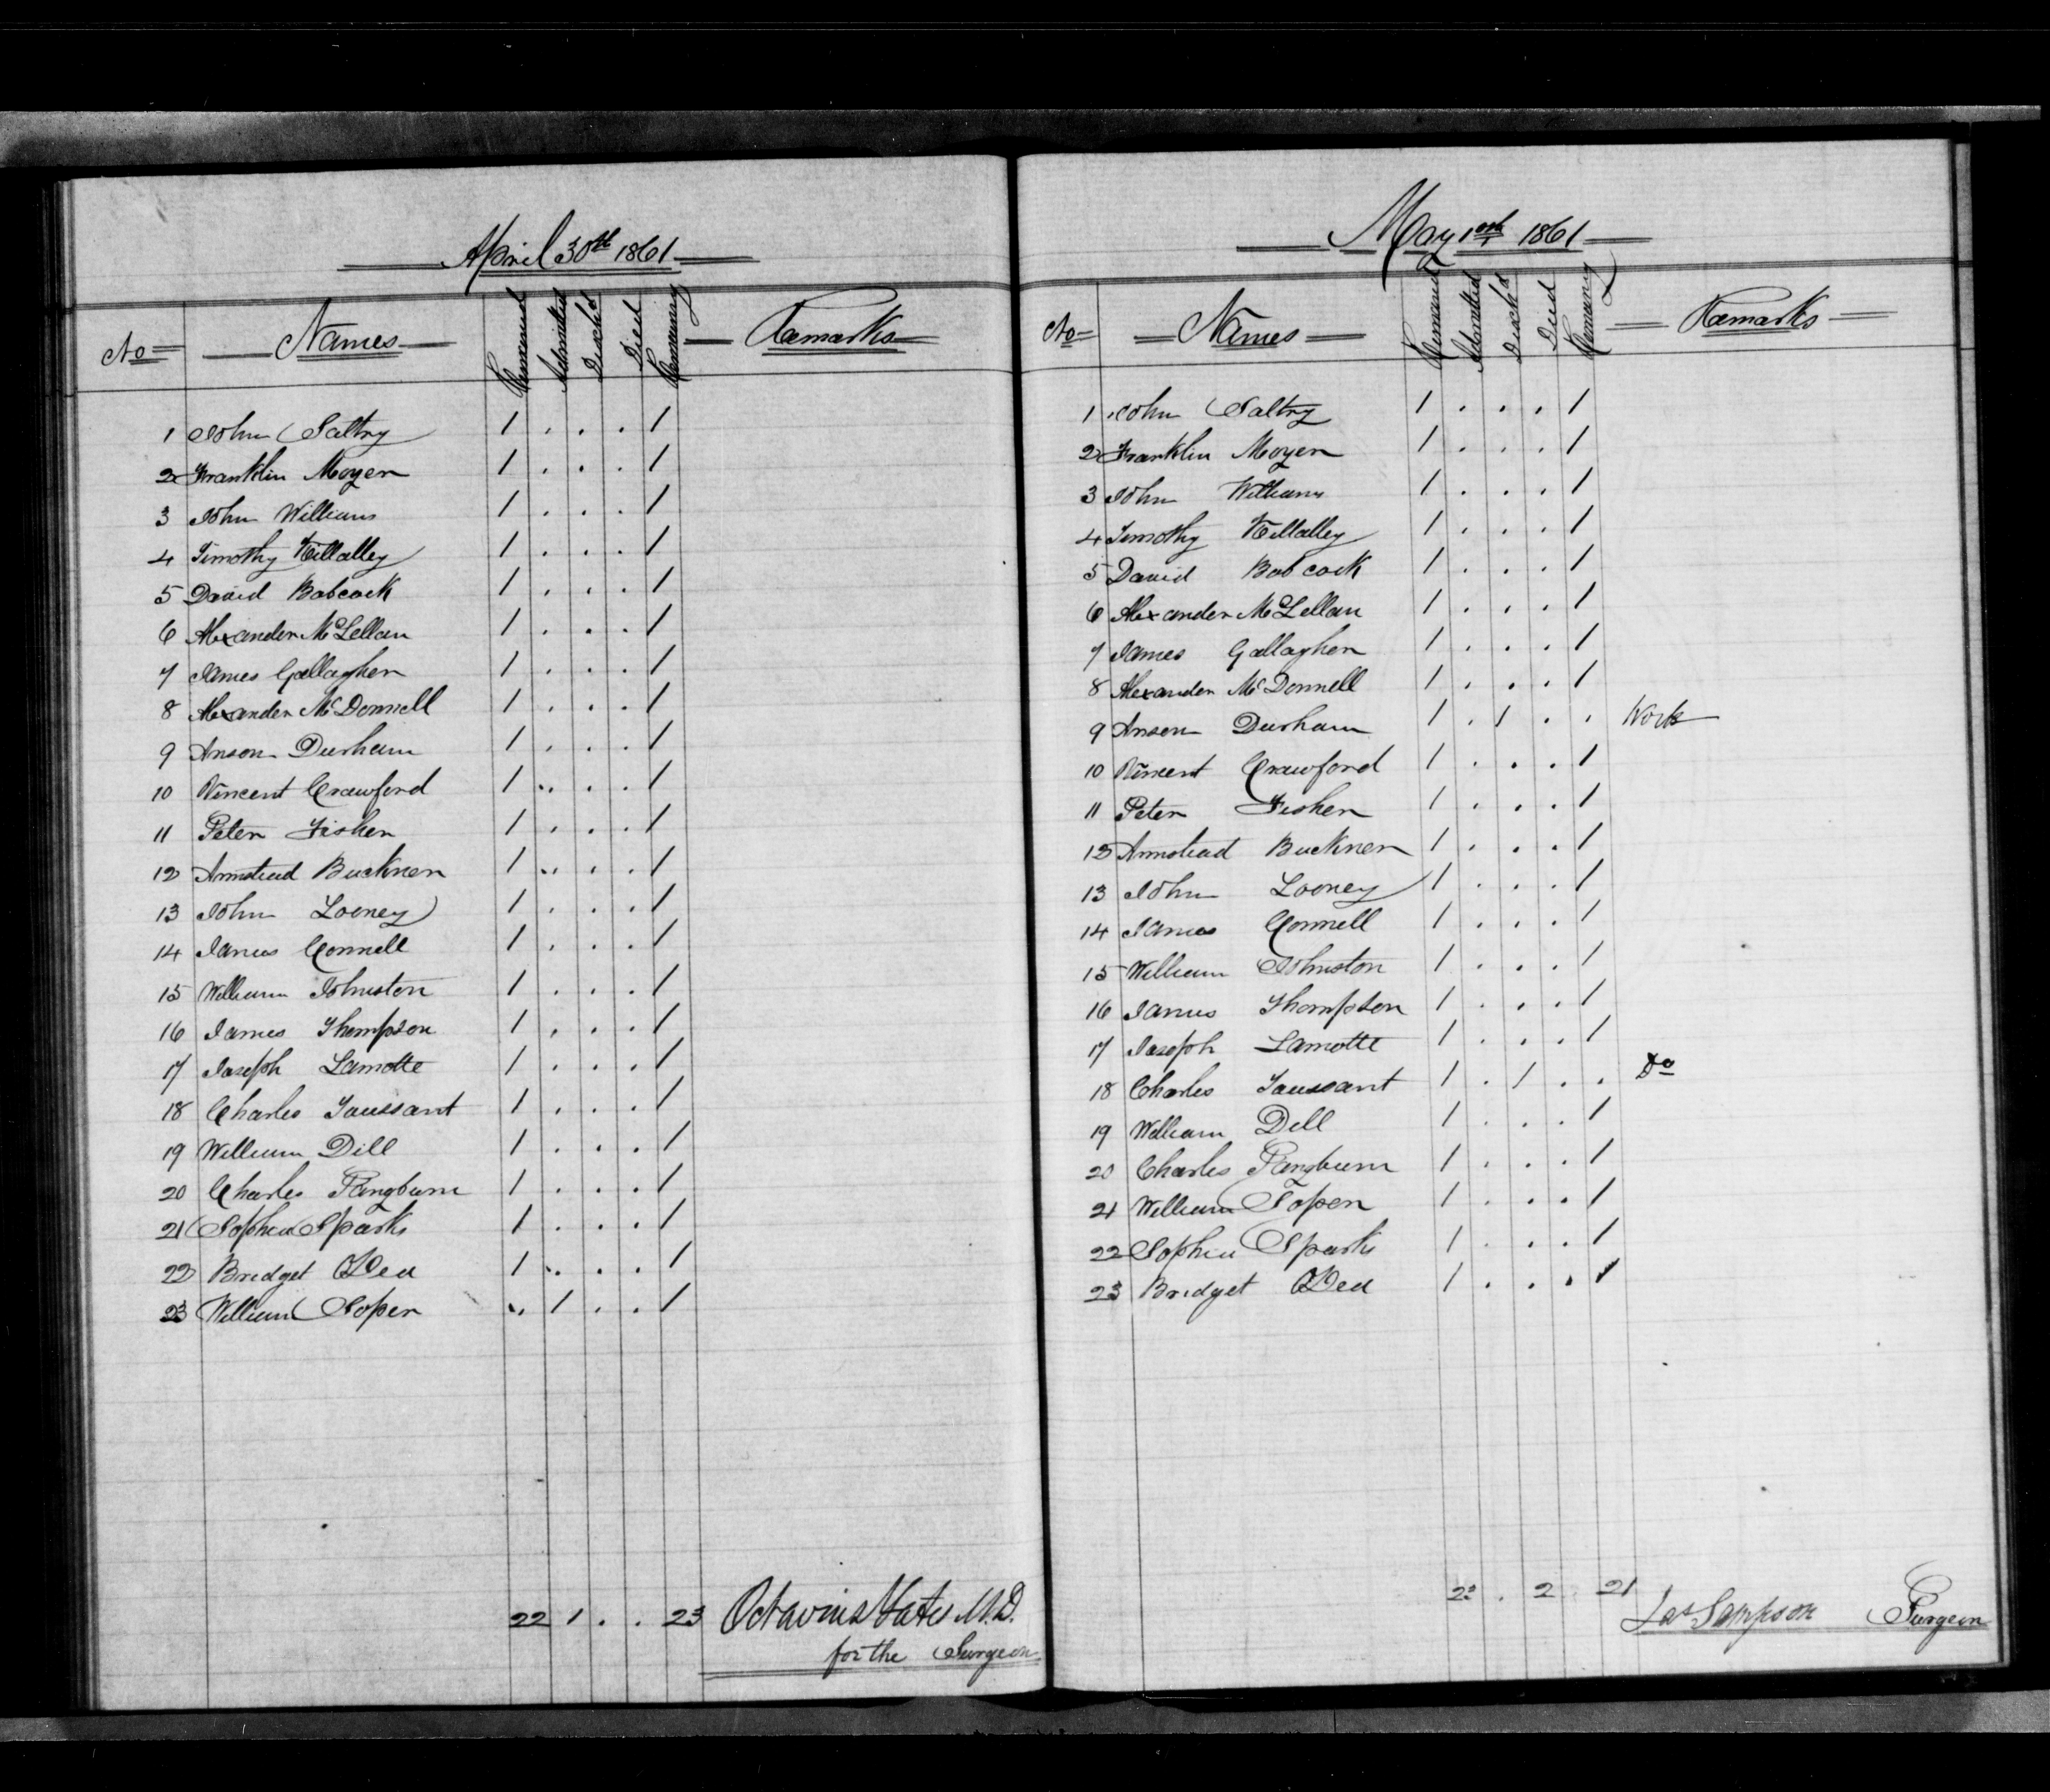 April 30th 1861
No Names Remained Admitted Disch'd Died Remaining Remarks
1 John Saltry 1 . . . 1
2 Franklin Moyer 1 . . . 1
3 John Williams 1 . . . 1
4 Timothy Killalley 1 . . . 1
5 David Babcock 1 . . . 1
6 Alexander McLellan 1 . . . 1
7 James Gallagher 1 . . . 1
8 Alexander McDonnell 1 . . . 1
9 Anson Durham 1 . . . 1
10 Vincent Crawford 1 . . . 1
11 Peter Fisher 1 . . . 1
12 Armstead Buckner 1 . . . 1
13 John Looney 1 . . . 1
14 James Connell 1 . . . 1
15 William Johnston 1 . . . 1
16 James Thompson 1 . . . 1
17 Joseph Lamotte 1 . . . 1
18 Charles Toussant 1 . . . 1
19 William Dill 1 . . . 1
20 Charles Pangburn 1 . . . 1
21 Sophia Sparks 1 . . . 1
22 Bridget ODea 1 . . . 1
23 William Soper . 1 . . 1
22 1 . . 23 Octavius Yates M.D.
for the Surgeon
May 1st 1861
No Names Remained Admitted Disch'd Died Remaining Remarks
1 John Saltry 1 . . . 1
2 Franklin Moyer 1 . . . 1
3 John Williams 1 . . . 1
4 Timothy Killalley 1 . . . 1
5 David Babcock 1 . . . 1
6 Alexander McLellan 1 . . . 1
7 James Gallagher 1 . . . 1
8 Alexander McDonnell 1 . . . 1
9 Anson Durham 1 . 1 . . Work
10 Vincent Crawford 1 . . . 1
11 Peter Fisher 1 . . . 1
12 Armstead Buckner 1 . . . 1
13 John Looney 1 . . . 1
14 James Connell 1 . . . 1
15 William Johnston 1 . . . 1
16 James Thompson 1 . . . 1
17 Joseph Lamotte 1 . . . 1
18 Charles Toussant 1 . 1 . . Do
19 William Dill 1 . . . 1
20 Charles Pangburn 1 . . . 1
21 William Soper 1 . . . 1
22 Sophia Sparks 1 . . . 1
23 Bridget ODea 1 . . . 1
23 . 2 . 21
Jas Sampson Surgeon